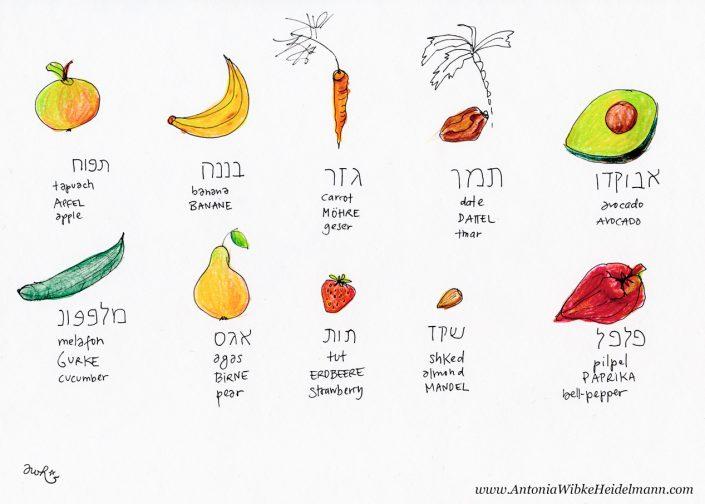 תפוח
tapuach
APFEL
apple
בננה
banana
BANANE
גזר
carrot
MÖHRE
geser
תמר
date
DATTEL
tmar
אבוקדו
avocado
AVOCADO
מלפפונ
melafon
GURKE
cucumber
אגס
agas
BIRNE
pear
תות
tut
ERDBEERE
strawberry
שקד
shked
almond
MANDEL
פלפל
pilpel
PAPRIKA
bell-pepper
www.AntoniaWibkeHeidelmann.com